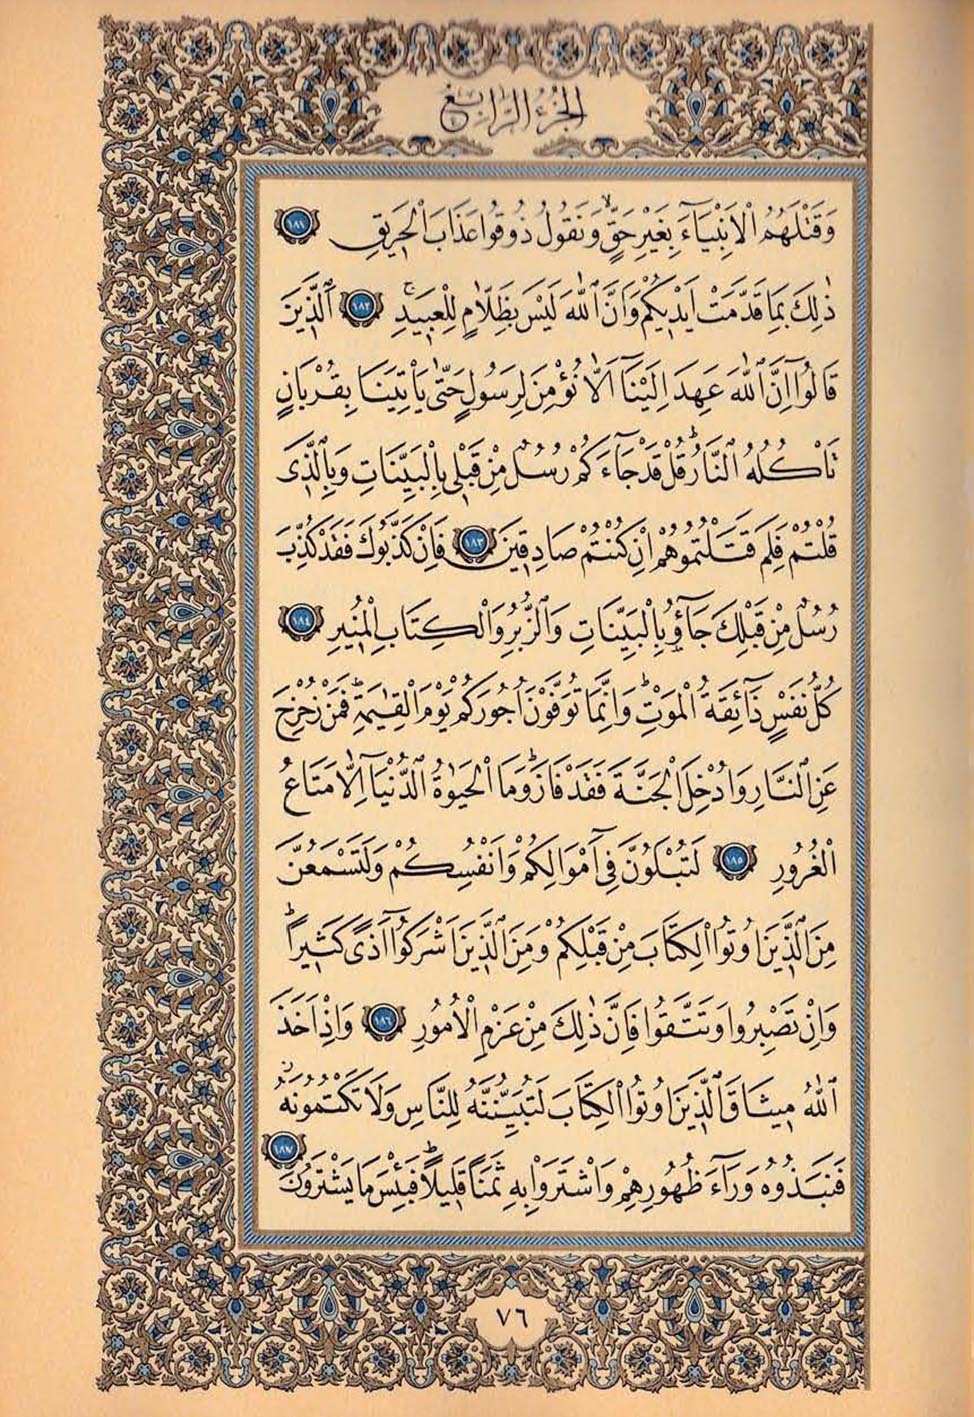 الجزء الرابع
وَقَتْلَهُمُ الْاَنْبِيَٓاءَ بِغَيْرِ حَقٍّۙ وَنَقُولُ ذُوقُوا عَذَابَ الْحَرِيقِ ﴿١٨١﴾
ذٰلِكَ بِمَا قَدَّمَتْ اَيْدِيكُمْ وَاَنَّ اللّٰهَ لَيْسَ بِظَلَّامٍ لِلْعَبِيدِۚ ﴿١٨٢﴾ اَلَّذِينَ
قَالُٓوا اِنَّ اللّٰهَ عَهِدَ اِلَيْنَٓا اَلَّا نُؤْمِنَ لِرَسُولٍ حَتّٰى يَأْتِيَنَا بِقُرْبَانٍ
تَأْكُلُهُ النَّارُۜ قُلْ قَدْ جَٓاءَكُمْ رُسُلٌ مِنْ قَبْلِي بِالْبَيِّنَاتِ وَبِالَّذِي
قُلْتُمْ فَلِمَ قَتَلْتُمُوهُمْ اِنْ كُنْتُمْ صَادِقِينَ ﴿١٨٣﴾ فَاِنْ كَذَّبُوكَ فَقَدْ كُذِّبَ
رُسُلٌ مِنْ قَبْلِكَ جَٓاؤُ۫ بِالْبَيِّنَاتِ وَالزُّبُرِ وَالْكِتَابِ الْمُنِيرِ ﴿١٨٤﴾
كُلُّ نَفْسٍ ذَٓائِقَةُ الْمَوْتِۜ وَاِنَّمَا تُوَفَّوْنَ اُجُورَكُمْ يَوْمَ الْقِيٰمَةِۜ فَمَنْ زُحْزِحَ
عَنِ النَّارِ وَاُدْخِلَ الْجَنَّةَ فَقَدْ فَازَۜ وَمَا الْحَيٰوةُ الدُّنْيَٓا اِلَّا مَتَاعُ
الْغُرُورِ ﴿١٨٥﴾ لَتُبْلَوُنَّ فِٓي اَمْوَالِكُمْ وَاَنْفُسِكُمْ وَلَتَسْمَعُنَّ
مِنَ الَّذِينَ اُوتُوا الْكِتَابَ مِنْ قَبْلِكُمْ وَمِنَ الَّذِينَ اَشْرَكُٓوا اَذًى كَثِيرًاۜ
وَاِنْ تَصْبِرُوا وَتَتَّقُوا فَاِنَّ ذٰلِكَ مِنْ عَزْمِ الْاُمُورِ ﴿١٨٦﴾ وَاِذْ اَخَذَ
اللّٰهُ مِيثَاقَ الَّذِينَ اُوتُوا الْكِتَابَ لَتُبَيِّنُنَّهُ لِلنَّاسِ وَلَا تَكْتُمُونَهُۘ
فَنَبَذُوهُ وَرَٓاءَ ظُهُورِهِمْ وَاشْتَرَوْا بِهِ ثَمَنًا قَلِيلًاۜ فَبِئْسَ مَا يَشْتَرُونَ ﴿١٨٧﴾
٧٦